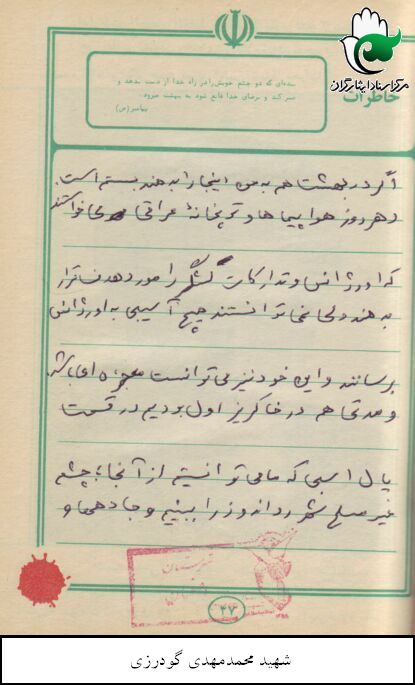 مرکز اسناد ایثارگران
خاطرات
بنده‌ای که دو چشم خویش را در راه خدا از دست بدهد و
صبر کند و برضای خدا قانع شود به بهشت میرود.
پیامبر(ص)
اگر در بهشت هم به من اینجا را به هند بسته است.
و هر روز هواپیماها و توپخانهٔ عراقی می‌خواستند
که اورژانس و تدارکات لشگر را مورد هدف قرار
بدهند ولی نمی‌توانستند هیچ آسیبی به اورژانس
برسانند و این خود نیز می‌توانست معجزه‌ای باشد
و مدتی هم در خاکریز اول بودیم در قسمت
پال اسبی که ما می‌توانستیم از آنجا با چشم
غیر مسلح شهر را ببینیم و جاده‌ها و
۴۷
شهید محمدمهدی گودرزی